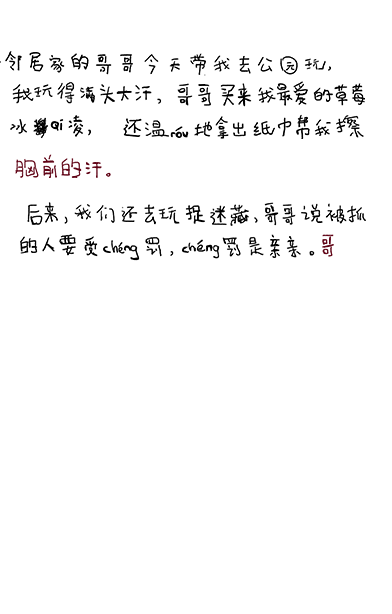 邻居家的哥哥今天带我去公园玩，
我玩得满头大汗，哥哥买来我最爱的草莓
冰qi凌，还温róu地拿出纸巾帮我擦
胸前的汗。
后来，我们还去玩捉迷藏，哥哥说被抓
的人要受chéng罚，chéng罚是亲亲。哥